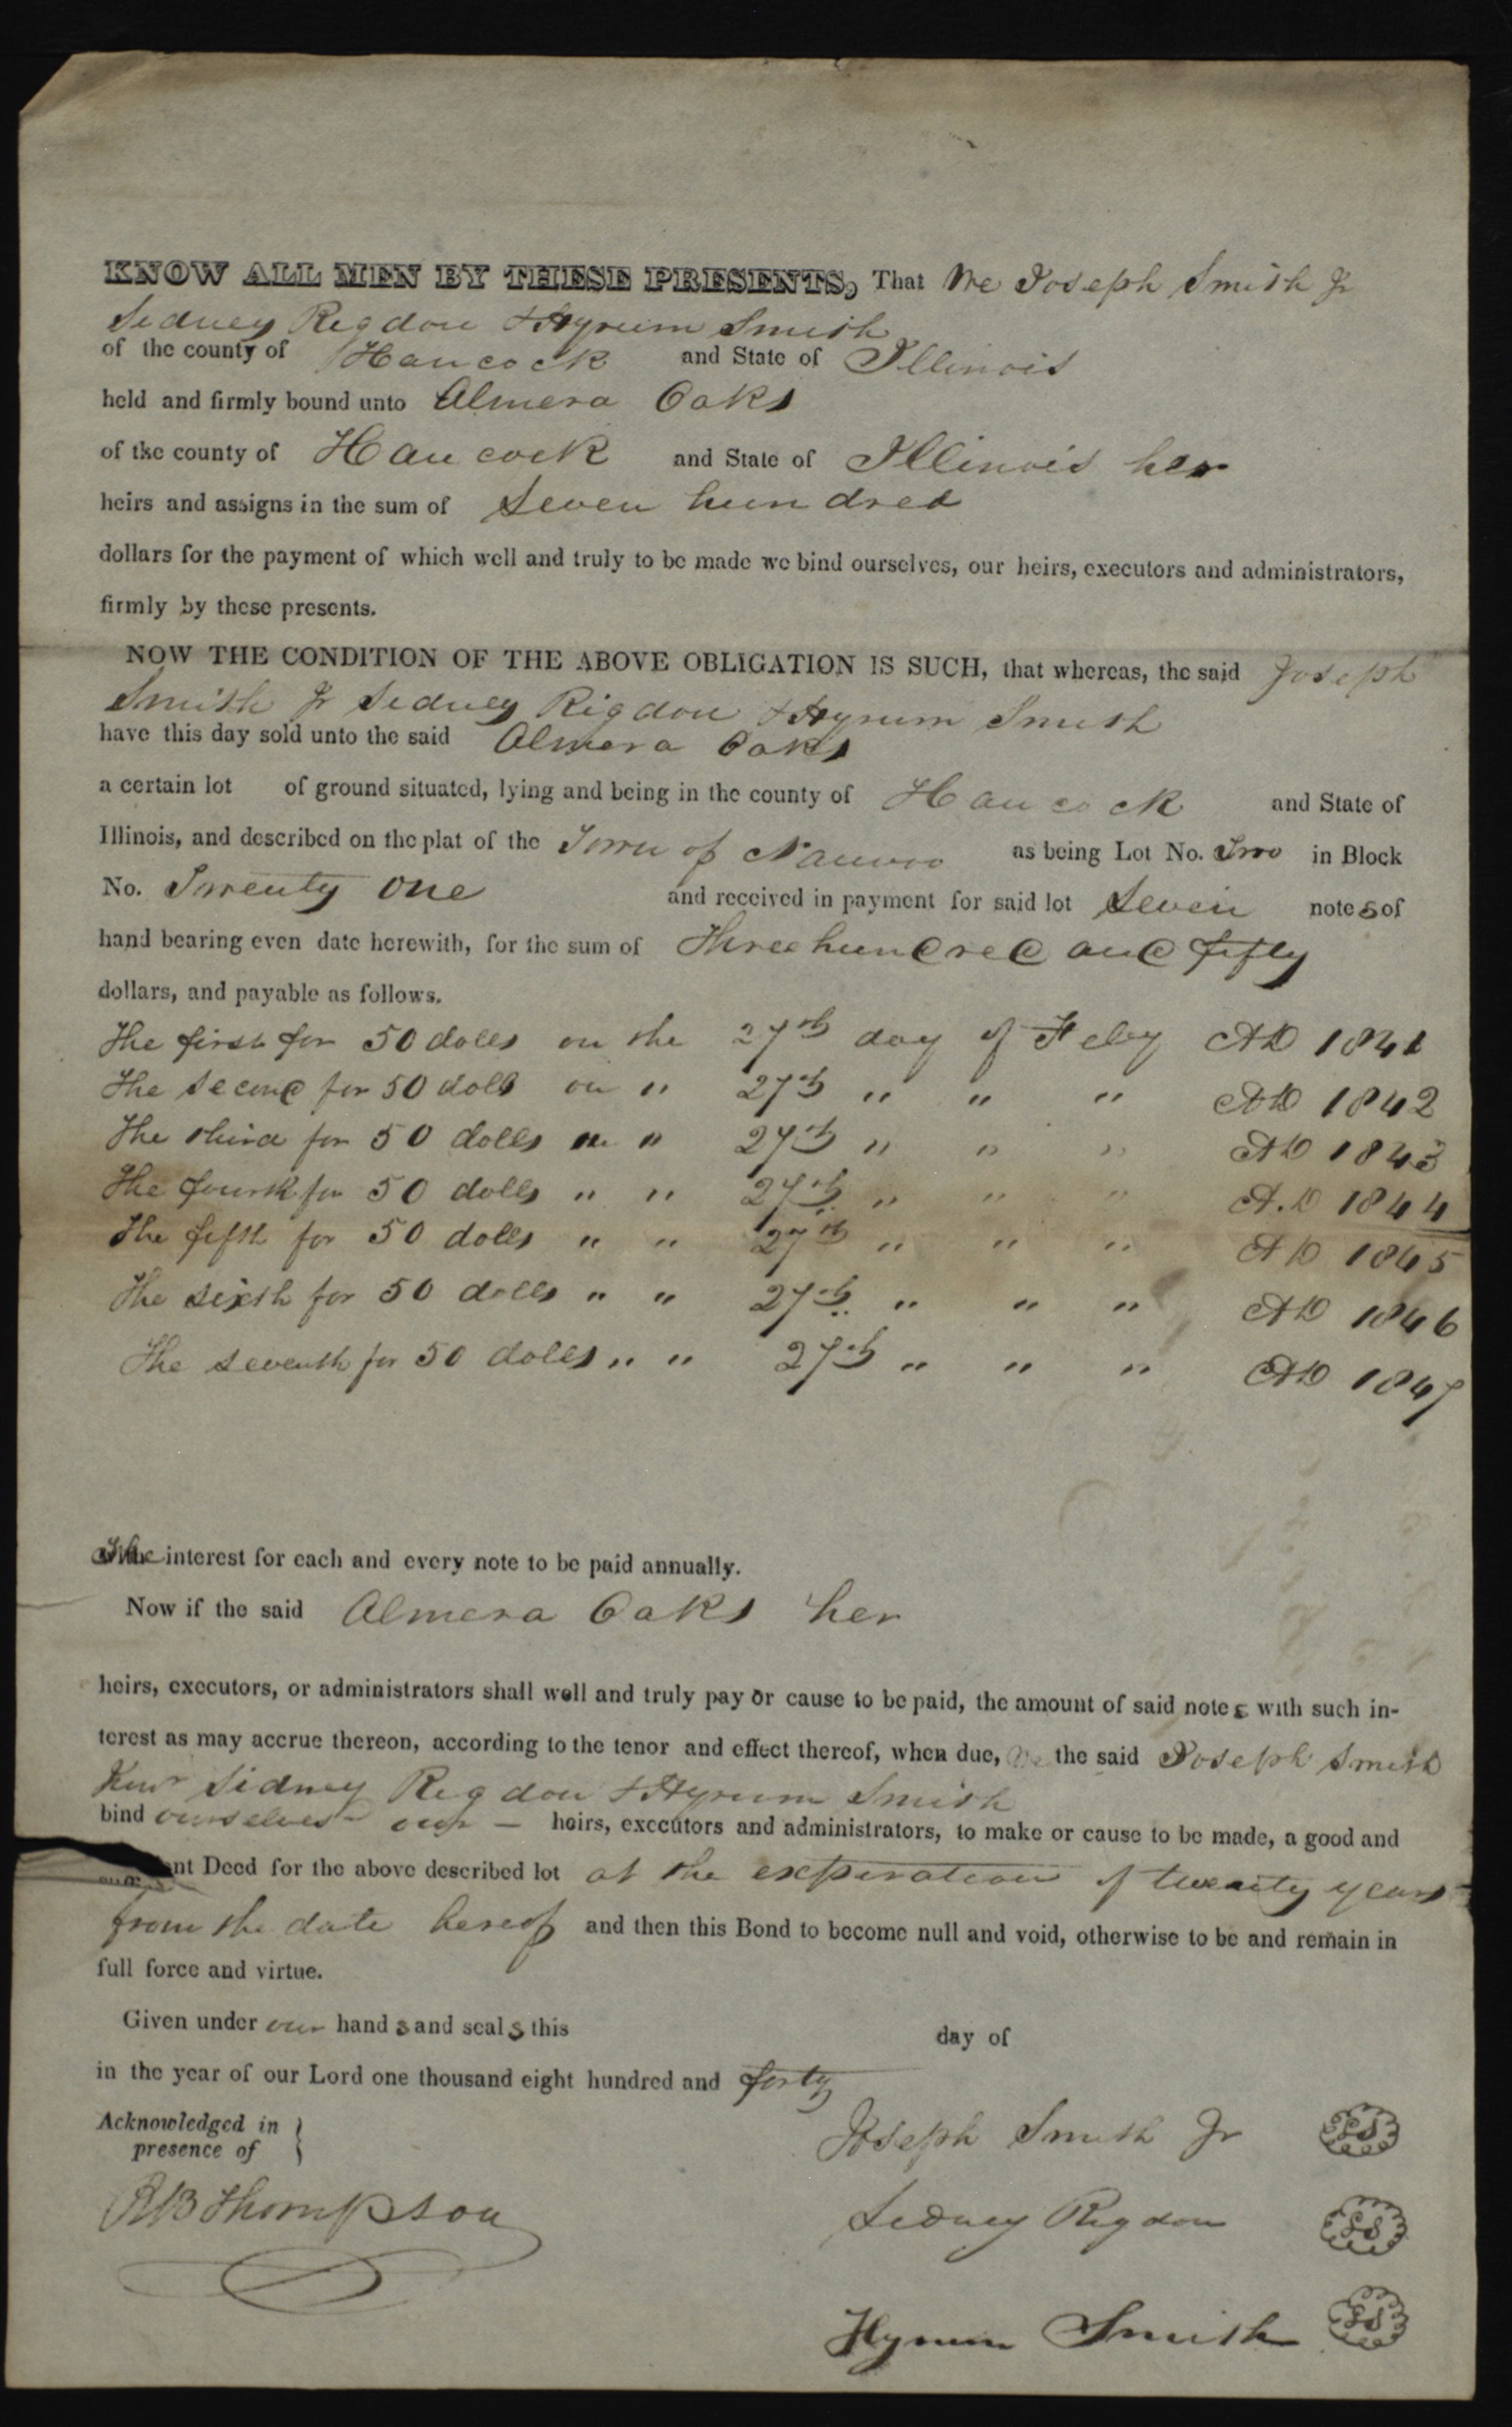 KNOW ALL MEN BY THESE PRESENTS, That We Joseph Smith Jr
Sidney Rigdon & Hyrum Smith
of the county of Hancock and State of Illinois
held and firmly bound unto Almera Oaks
of the county of Hancock and State of Illinois her
heirs and assigns in the sum of Seven hundred
dollars for the payment of which well and truly to be made we bind ourselves, our heirs, executors and administrators,
firmly by these presents.
NOW THE CONDITION OF THE ABOVE OBLIGATION IS SUCH, that whereas, the said Joseph
Smith Jr Sidney Rigdon & Hyrum Smith
have this day sold unto the said Almera Oaks
a certain lot of ground situated, lying and being in the county of Hancock and State of
Illinois, and described on the plat of the Town of Nauvoo as being Lot No. Two in Block
No. Twenty one and received in payment for said lot Seven notes of
hand bearing even date herewith, for the sum of Three hundred and fifty
dollars, and payable as follows.
The first for 50 dolls on the 27th day of Feby AD 1841
The second for 50 dolls on " 27th " " " AD 1842
The third for 50 dolls on " 27th " " " AD 1843
The fourth for 50 dolls " " 27th " " " A.D 1844
The fifth for 50 dolls " " 27th " " " AD 1845
The sixth for 50 dolls " " 27th " " " AD 1846
The seventh for 50 dolls " " 27th " " " AD 1847
The interest for each and every note to be paid annually.
Now if the said Almera Oaks her
heirs, executors, or administrators shall well and truly pay or cause to be paid, the amount of said notes with such in-
terest as may accrue thereon, according to the tenor and effect thereof, when due, We the said Joseph Smith
Junr Sidney Rigdon & Hyrum Smith
bind ourselves our — heirs, executors and administrators, to make or cause to be made, a good and
nt Deed for the above described lot at the expiration of twenty years
from the date hereof and then this Bond to become null and void, otherwise to be and remain in
full force and virtue.
Given under our hands and seals this day of
in the year of our Lord one thousand eight hundred and forty
Acknowledged in
presence of }
Joseph Smith Jr LS
R B Thompson
Sidney Rigdon LS
Hyrum Smith LS